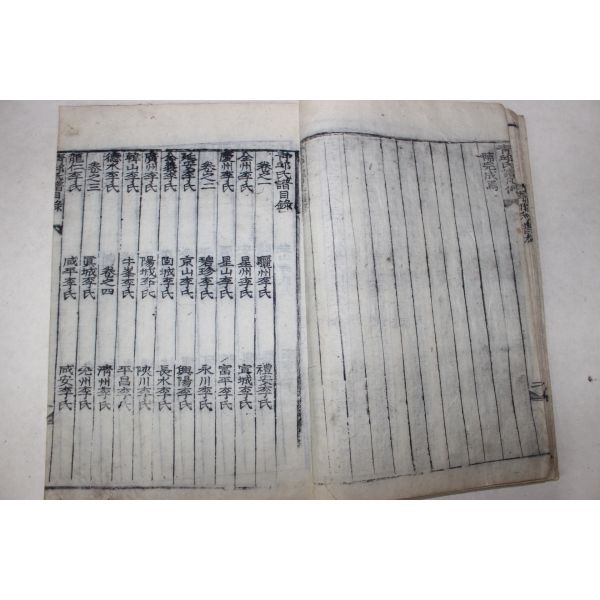 氏譜目錄
卷之一 驪州李氏 禮安李氏
全州李氏 星州李氏 宣城李氏
慶州李氏 星山李氏 富平李氏
卷之二 碧珍李氏 永川李氏
延安李氏 京山李氏 興陽李氏
全義李氏 固城李氏 長水李氏
廣州李氏 陽城李氏 陜川李氏
韓山李氏 牛峯李氏 平昌李氏
德水李氏 卷之四 濟州李氏
卷之三 眞城李氏 光州李氏
龍仁李氏 咸平李氏 咸安李氏